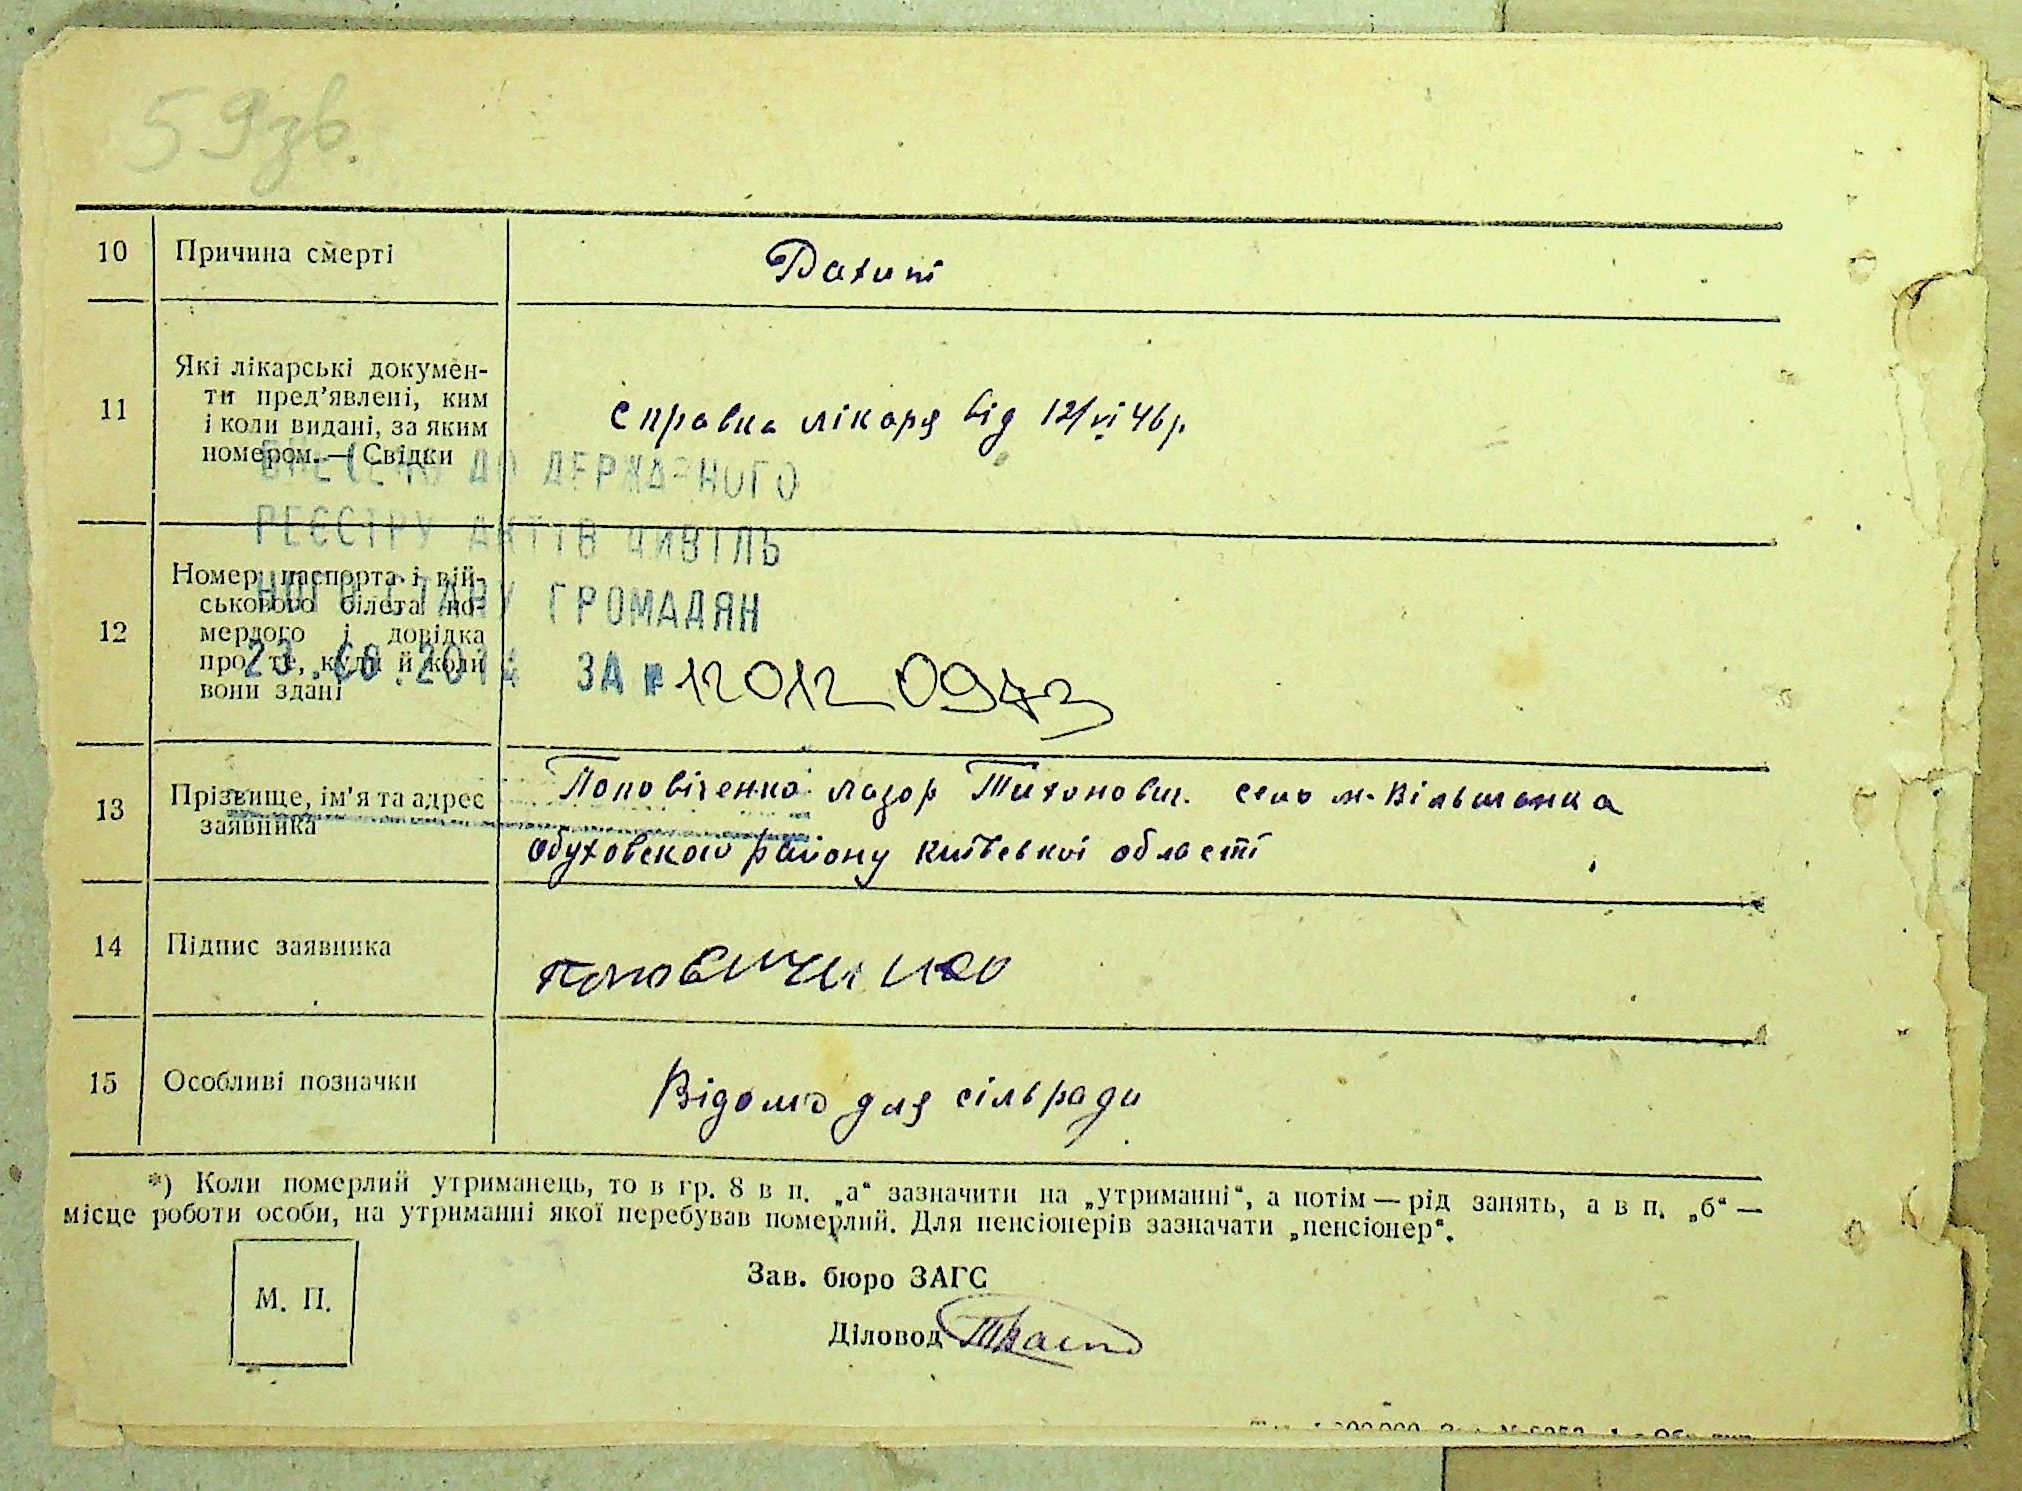 59зв.
10 Причина смерті
Рахит
11 Які лікарські докумен-
ти пред'явлені, ким
і коли видані, за яким
номером.—Свідки
Справка лікаря від 12/VI 46р.
ВНЕСЕНО ДО ДЕРЖАВНОГО
РЕЄСТРУ АКТІВ ЦИВІЛЬ
НОГО СТАНУ ГРОМАДЯН
ЗА № 120120973
12 Номер паспорта і вій-
ськового білета по-
мерлого і довідка
про те, куди й коли
вони здані
13 Прізвище, ім'я та адрес
заявника
Поповіченко Лазор Тихонович. село м-Вільшанка
Обуховского району київської області
14 Підпис заявника
15 Особливі позначки
Відомо для сільради
*) Коли померлий утриманець, то в гр. 8 в п. „а“ зазначити на „утриманні“, а потім — рід занять, а в п. „б“ —
місце роботи особи, на утриманні якої перебував померлий. Для пенсіонерів зазначати „пенсіонер“.
М. П.
Зав. бюро ЗАГС
Діловод